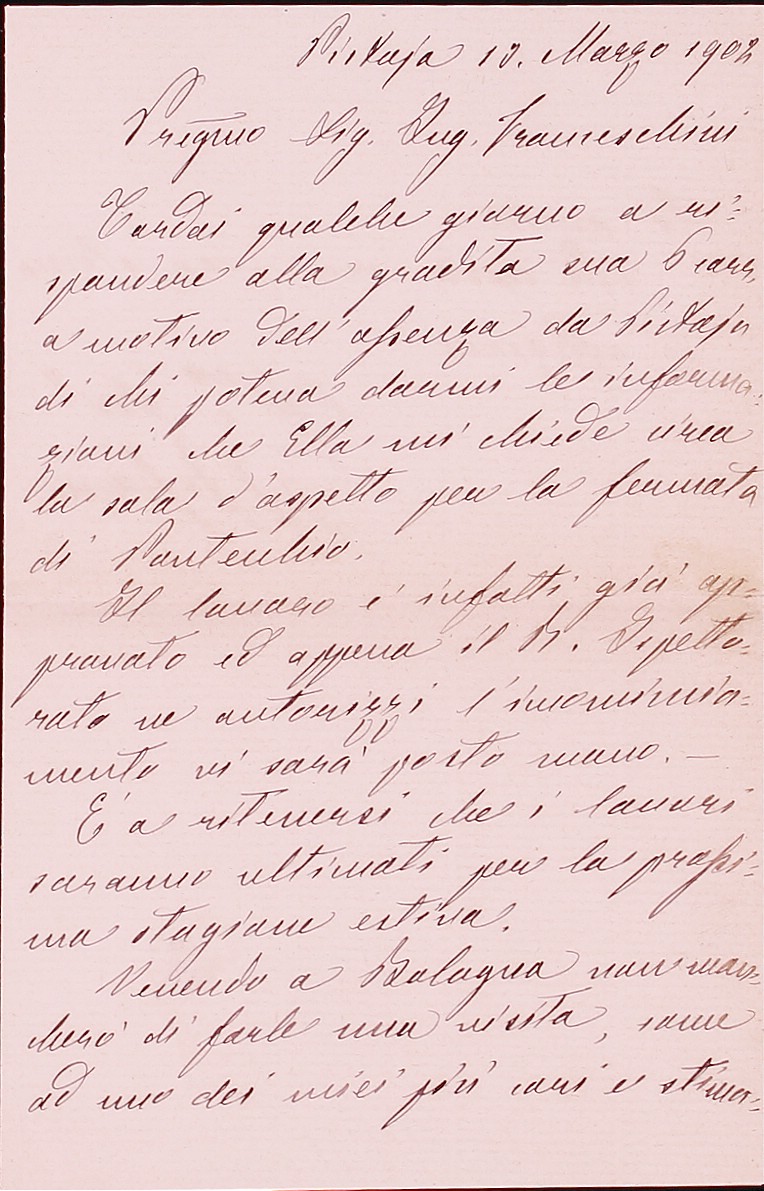 Pistoja 13. Marzo 1902
Pregmo Sig. Ing. Franceschini
Tardai qualche giorno a ri=
spondere alla gradita sua 6 corr.
a motivo dell'assenza da Pistoja
di chi poteva darmi le informa=
zioni che Ella mi chiede circa
la sala d'aspetto per la fermata
di Pontecchio.
Il lavoro é infatti giá ap=
provato ed appena il R. Ispetto=
rato ne autorizzi l'incomincia=
mento vi sará posto mano. —
E' a ritenersi che i lavori
saranno ultimati per la prossi=
ma stagione estiva.
Venendo a Bologna non man=
cheró di farle una visita, come
ad uno dei miei piú cari e stima=